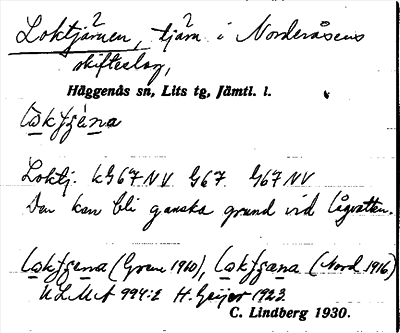 Loktjärnen, tjärn i Norderåsens
skifteslag,
Häggenås sn, Lits tg, Jämtl. l.
Loktj. kG67NV G67 G67 NV
Den kan bli ganska grund vid lågvatten.
(Grene 1910), (Nord 1916)
ULMA 994:2 H. Geijer 1923.
C. Lindberg 1930.